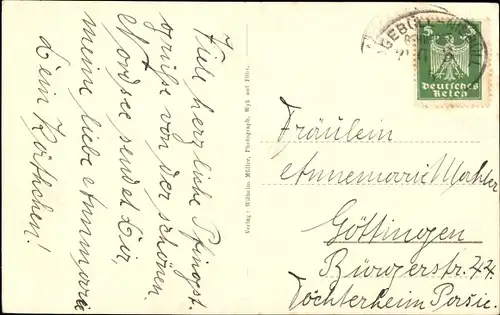 Viele herzliche Pfingst-
grüße von der schönen
Nordsee sendet Dir,
meine liebe Annmarie
Dein Käthchen!
Verlag: Wilhelm Müller, Photograph, Wyk auf Föhr.
5 5
Deutsches
Reich
Fräulein
Annemarie Mahler
Göttingen
Bürgerstr. 42.
Töchterheim